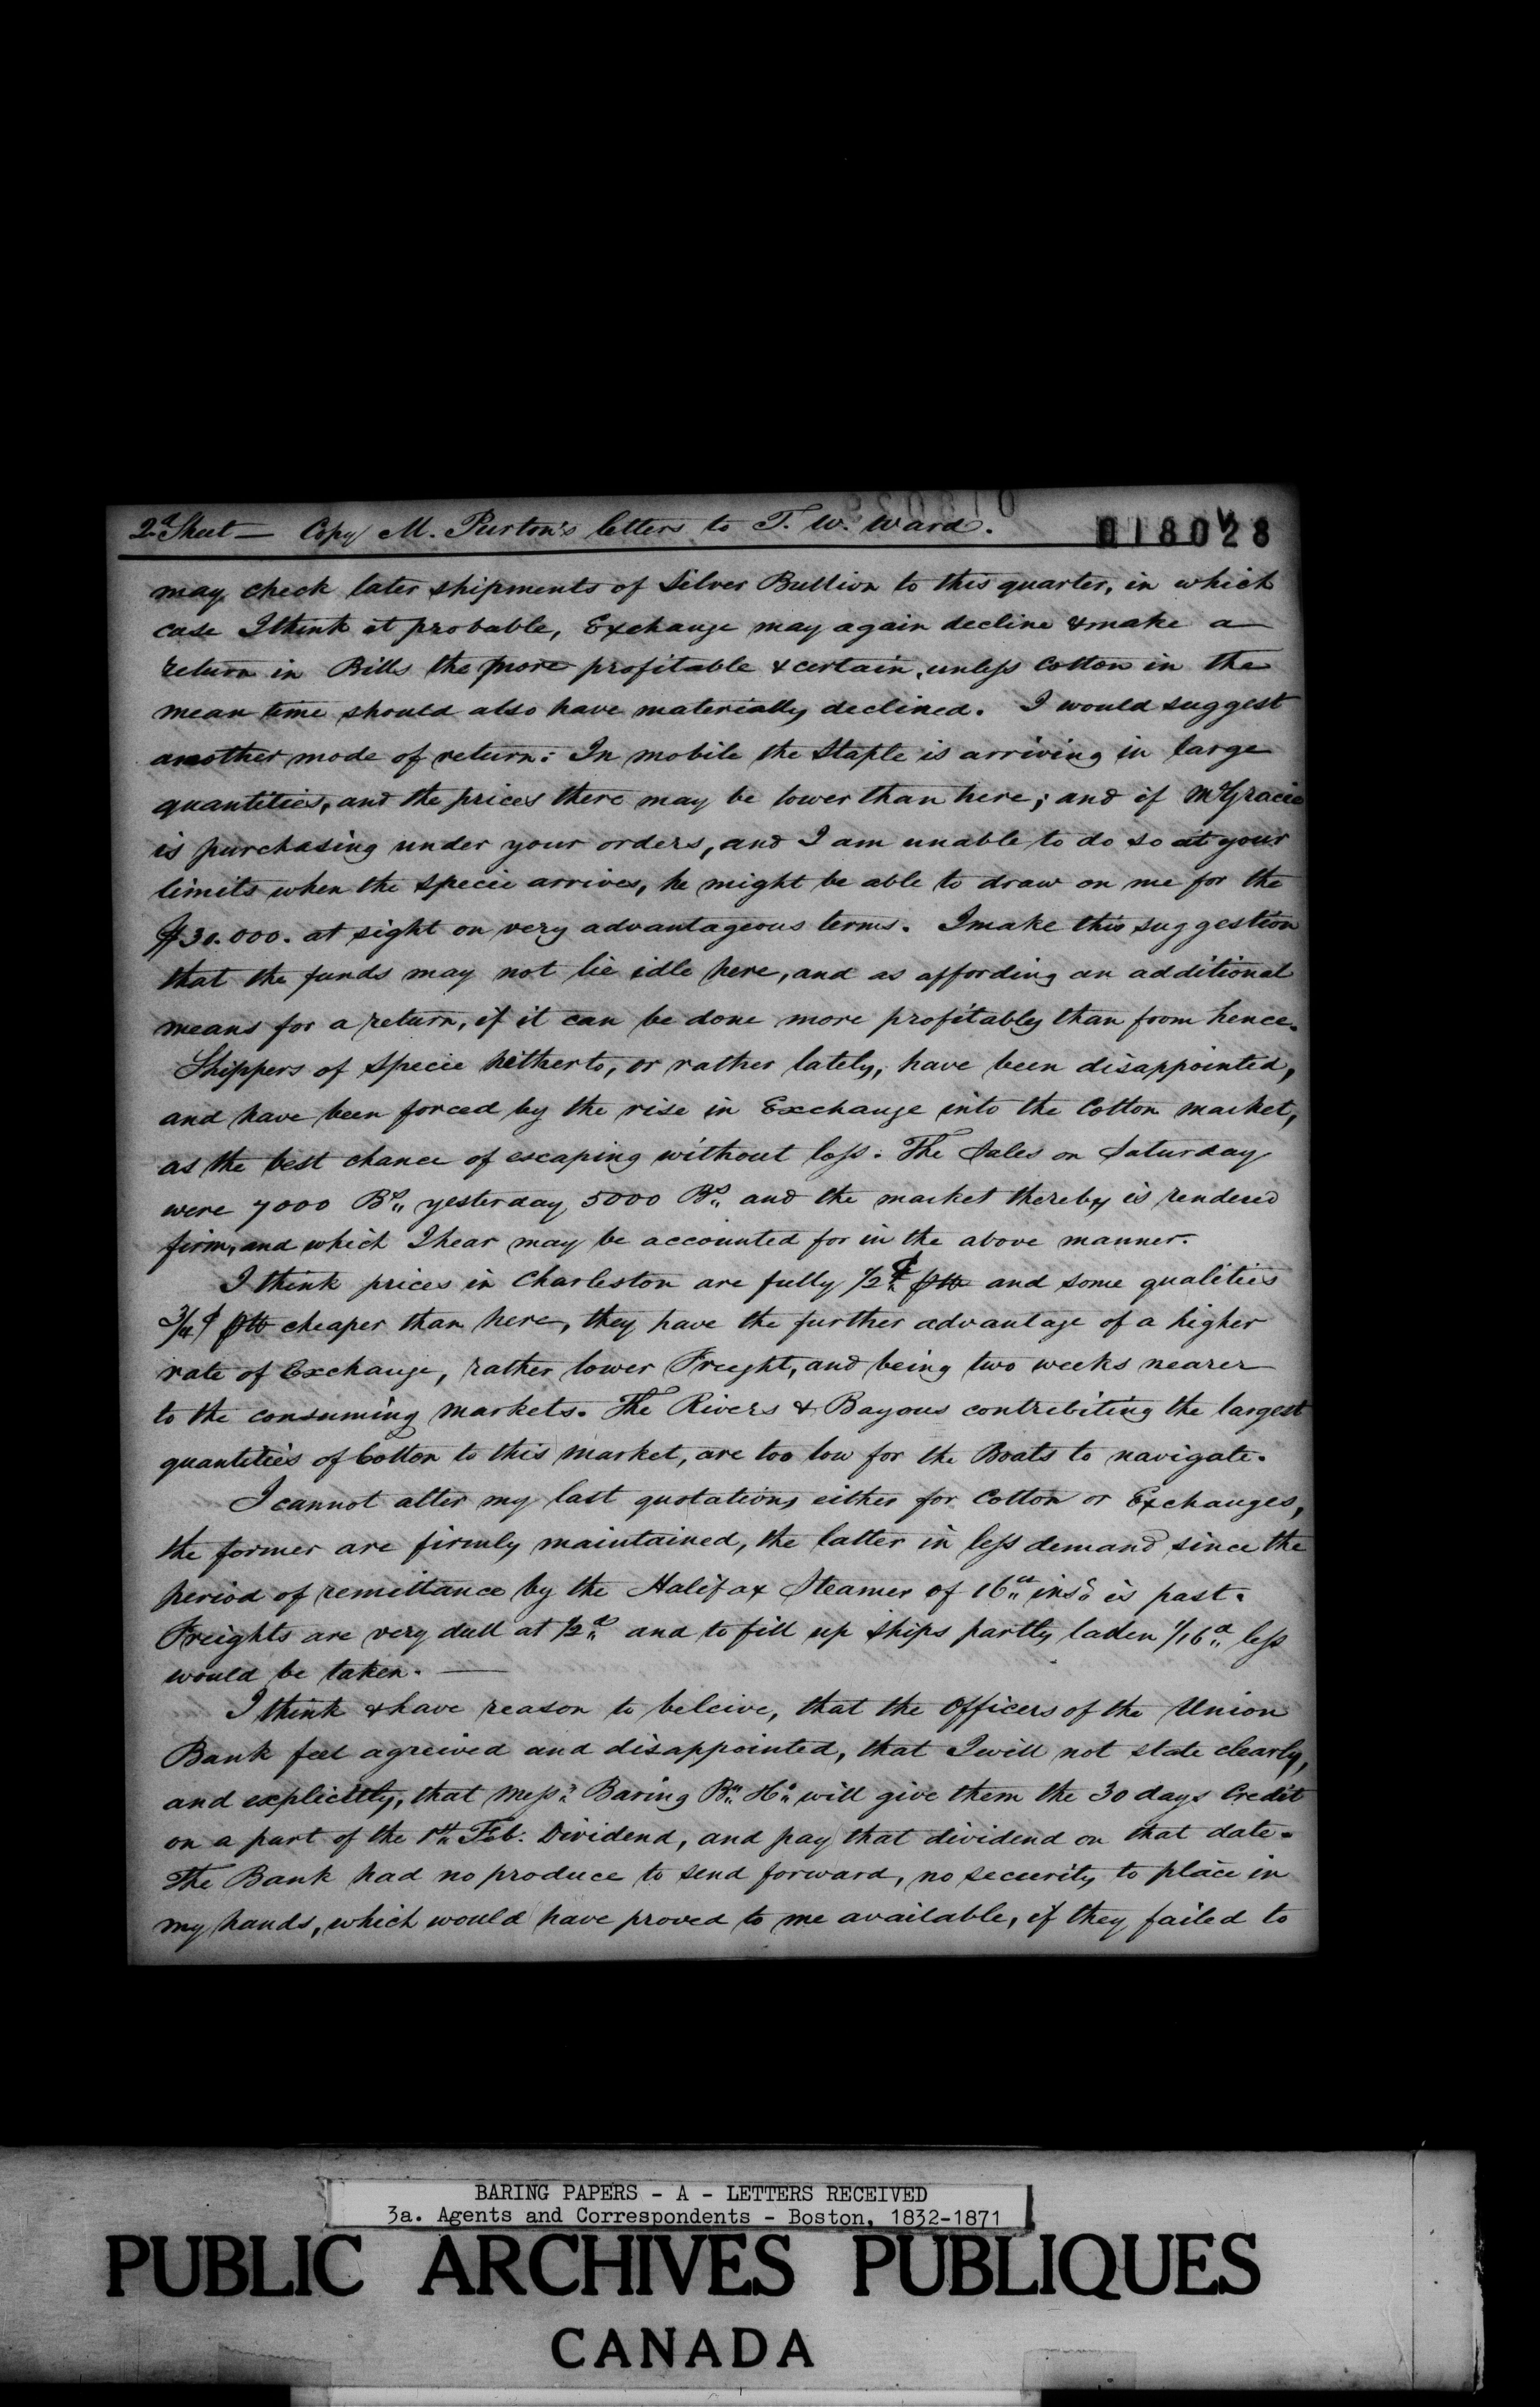 2d Sheet — Copy M. Purton's letters to T. W. Ward.
018028
may check later shipments of Silver Bullion to this quarter, in which
case I think it probable, Exchange may again decline & make a
return in Bills the more profitable & certain, unless Cotton in the
mean time should also have materially declined. I would suggest
another mode of return: In mobile the Staple is arriving in large
quantities, and the prices there may be lower than here; and if Mr Gracie
is purchasing under your orders, and I am unable to do so at your
limits when the specie arrives, he might be able to draw on me for the
$30.000. at sight on very advantageous terms. I make this suggestion
that the funds may not lie idle here, and as affording an additional
means for a return, if it can be done more profitably than from hence.
Shippers of Specie hitherto, or rather lately, have been disappointed,
and have been forced by the rise in Exchange into the Cotton market,
as the best chance of escaping without loss. The Sales on Saturday
were 7000 Bs yesterday 5000 Bs and the market thereby is rendered
firm, and which I hear may be accounted for in the above manner.
I think prices in Charleston are fully 1/2 ¢ ℔ and some qualities
3/4 ¢ ℔ cheaper than here, they have the further advantage of a higher
rate of Exchange, rather lower Freight, and being two weeks nearer
to the consuming markets. The Rivers & Bayous contribiting the largest
quantities of Cotton to this market, are too low for the Boats to navigate.
I cannot alter my last quotations either for Cotton or Exchanges,
the former are firmly maintained, the latter in less demand since the
period of remittance by the Halifax Steamer of 16th inst is past.
Freights are very dull at 1/2d and to fill up ships partly laden 1/16d less
would be taken. —
I think & have reason to beleive, that the Officers of the Union
Bank feel agreived and disappointed, that I will not state clearly,
and explicitly, that Messrs Baring Brs & Co will give them the 30 days Credit
on a part of the 1st Feb. Dividend, and pay that dividend on that date.
The Bank had no produce to send forward, no security to place in
my hands, which would have proved to me available, if they failed to
BARING PAPERS - A - LETTERS RECEIVED
3a. Agents and Correspondents - Boston, 1832-1871
PUBLIC ARCHIVES PUBLIQUES
CANADA